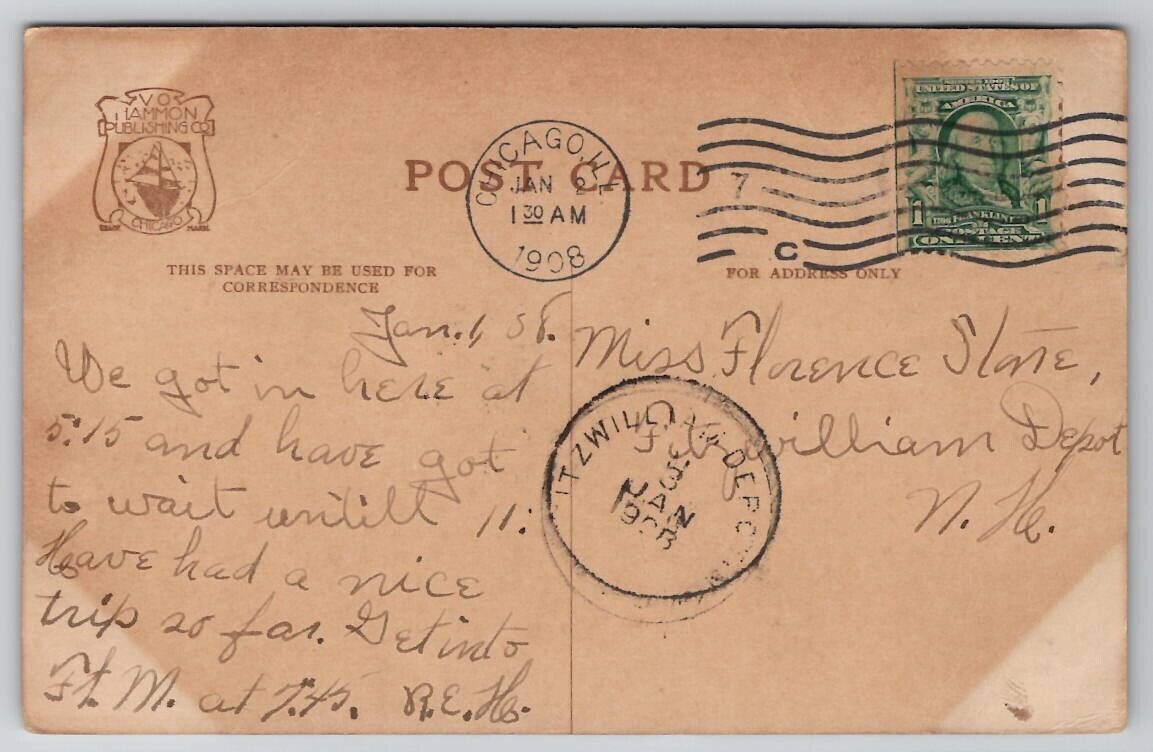 V O
HAMMON
PUBLISHING CO
CHICAGO
TRADE MARK
POST CARD
CHICAGO, ILL
JAN 2
1 30 AM
1908
7
C
SERIES 1902
UNITED STATES OF
AMERICA
1 FRANKLIN 1
POSTAGE
ONE CENT
THIS SPACE MAY BE USED FOR
CORRESPONDENCE
FOR ADDRESS ONLY
Jan. 1, 08.
We got in here at
5:15 and have got
to wait untill 11:
Have had a nice
trip so far. Get into
Ft. M. at 7.45. R.E.H.
Miss Florence Stone,
Fitzwilliam Depot
N. H.
FITZWILLIAM DEPOT
JAN
3
1908